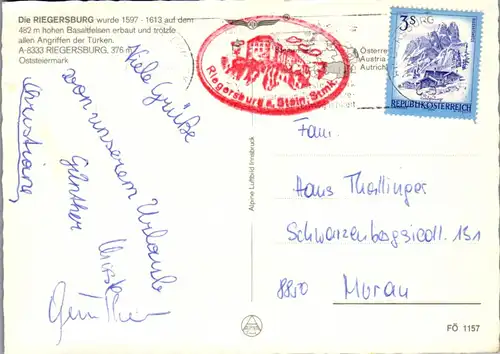 Die RIEGERSBURG wurde 1597 - 1613 auf dem
482 m hohen Basaltfelsen erbaut und trotzte
allen Angriffen der Türken.
A-8333 RIEGERSBURG, 376 m
Oststeiermark
Viele Grüße
von unserem Urlaub
Günther Christa
Christiane
Günther
Alpine Luftbild Innsbruck
Riegersburg i. Stein. Stmk.
Österre
Austria
Autrich
3S
REPUBLIK ÖSTERREICH
Fam.
Hans
Schwarzenbergsiedl. 151
8850 Murau
FÖ 1157